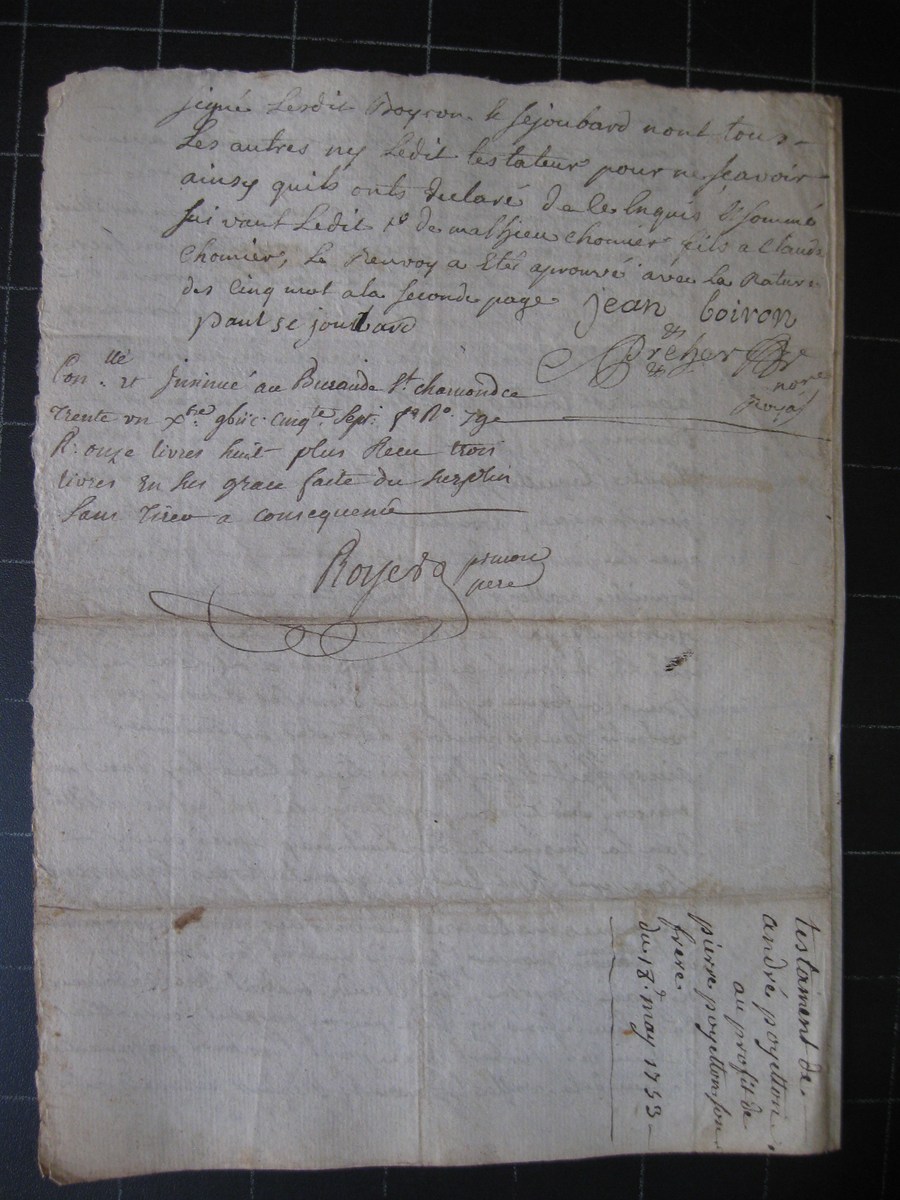 signé Lesdit Boyron & sejoubard nont tous
Les autres ny Ledit testateur pour ne sçavoir
ainsy quils onts declaré de ce Enquis & sommé
sui vant Ledit de mathieu chomier fils a Claude
chomier, Le Renvoy a Etés aprouvé avec la Rature
des Cinq mot a la seconde page jean boiron
paul se joubard
nore
royal
Conllé et Insinué au Bureau de St chamond ce
trente un xbre cinqte sept
R. onze livres huit plus Receu trois
livres en sus grace faite du surplus
sans tirer a consequence
Royer
pere
testament de
andré poyetton
au profit de
pierre poyetton son
frere
du 18 may 1753